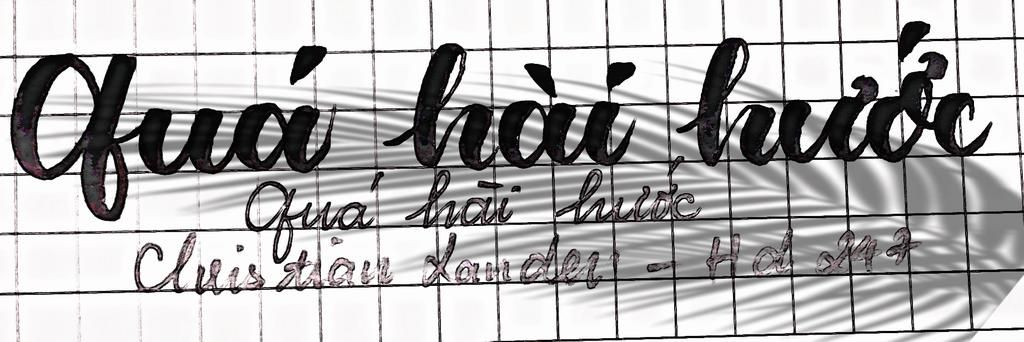 Quá hài hước
Quá hài hước
Christian Xander - Hd 247